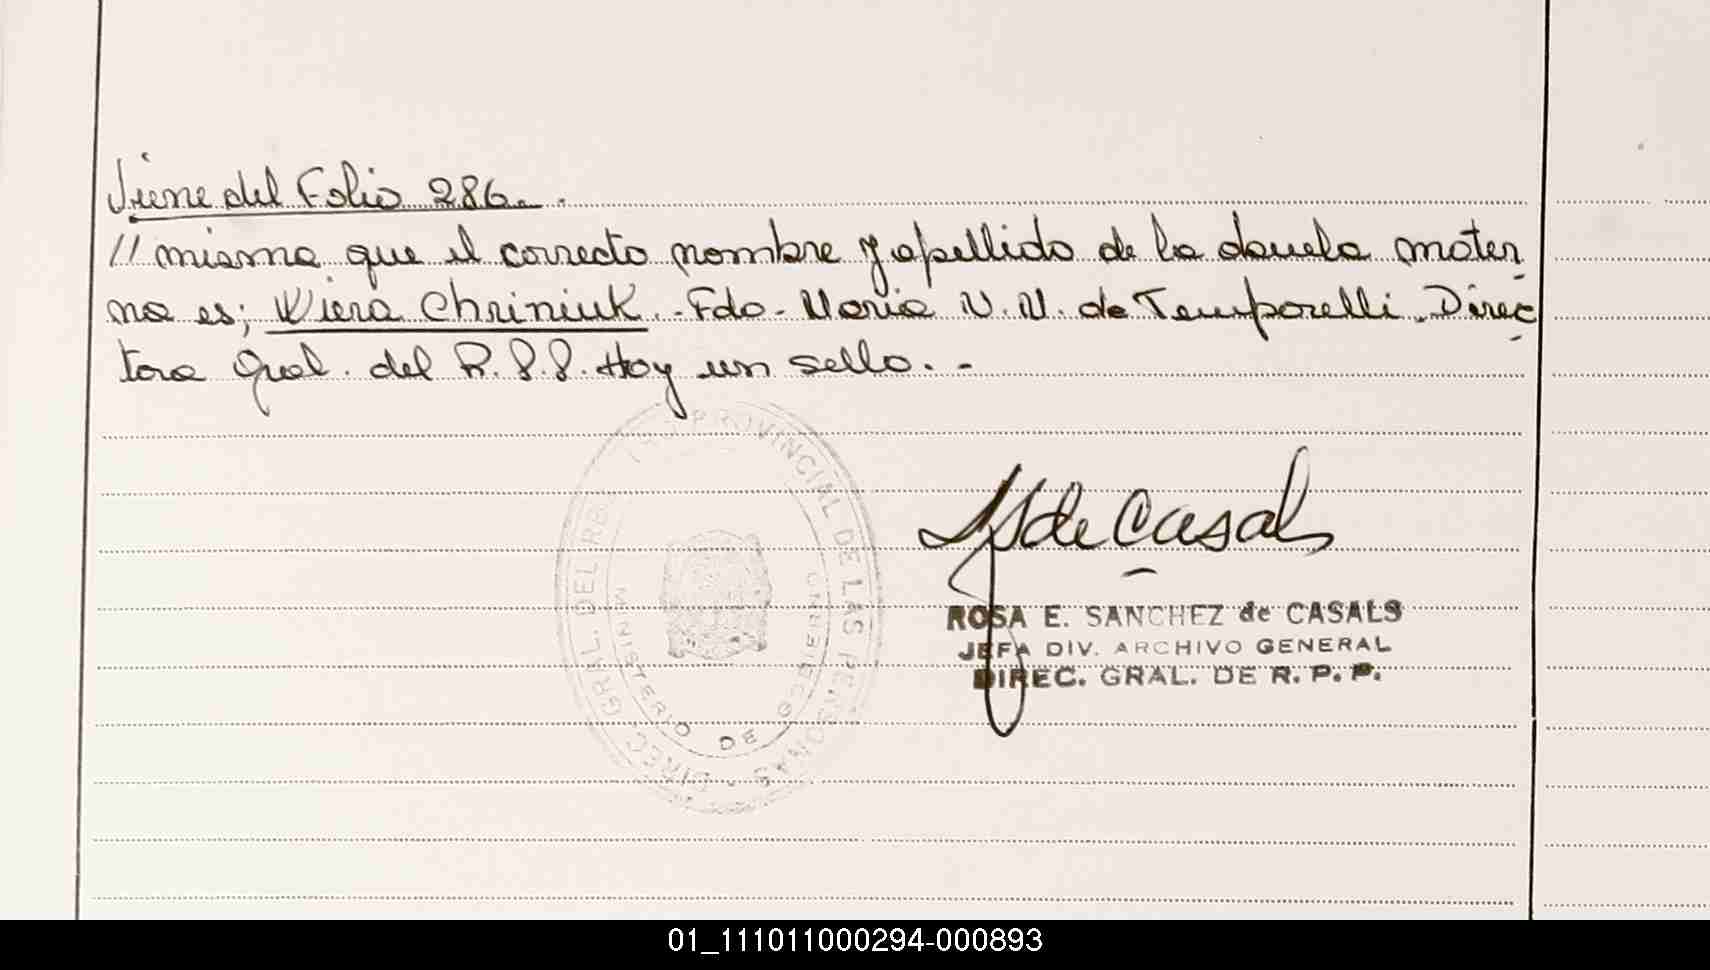 Viene del Folio 286. -
// misma que el correcto nombre y apellido de la abuela mater
na es; Wiera Chriniuk. - Fdo - Maria N. N. de Temporelli. Direc
tora Gral. del R. P. P. Hay un sello. -
DIREC. GRAL. DEL REG. PROVINCIAL DE LAS PERSONAS
MINISTERIO DE GOBIERNO
de Casals
ROSA E. SANCHEZ de CASALS
JEFA DIV. ARCHIVO GENERAL
DIREC. GRAL. DE R. P. P.
01_111011000294-000893